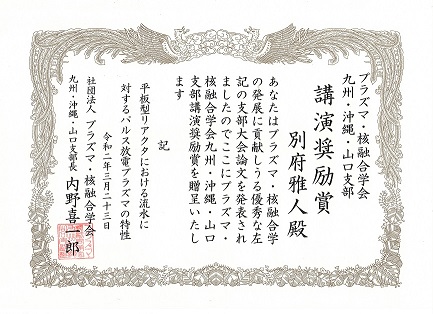 プラズマ・核融合学会
九州・沖縄・山口支部
講演奨励賞
別府雅人殿
あなたはプラズマ・核融合学
の発展に貢献しうる優秀な左
記の支部大会論文を発表され
ましたのでここにプラズマ・
核融合学会九州・沖縄・山口
支部講演奨励賞を贈呈いたし
ます
記
平板型リアクタにおける流水に
対するパルス放電プラズマの特性
令和二年三月二十三日
社団法人 プラズマ・核融合学会
九州・沖縄・山口支部長 内野喜一郎